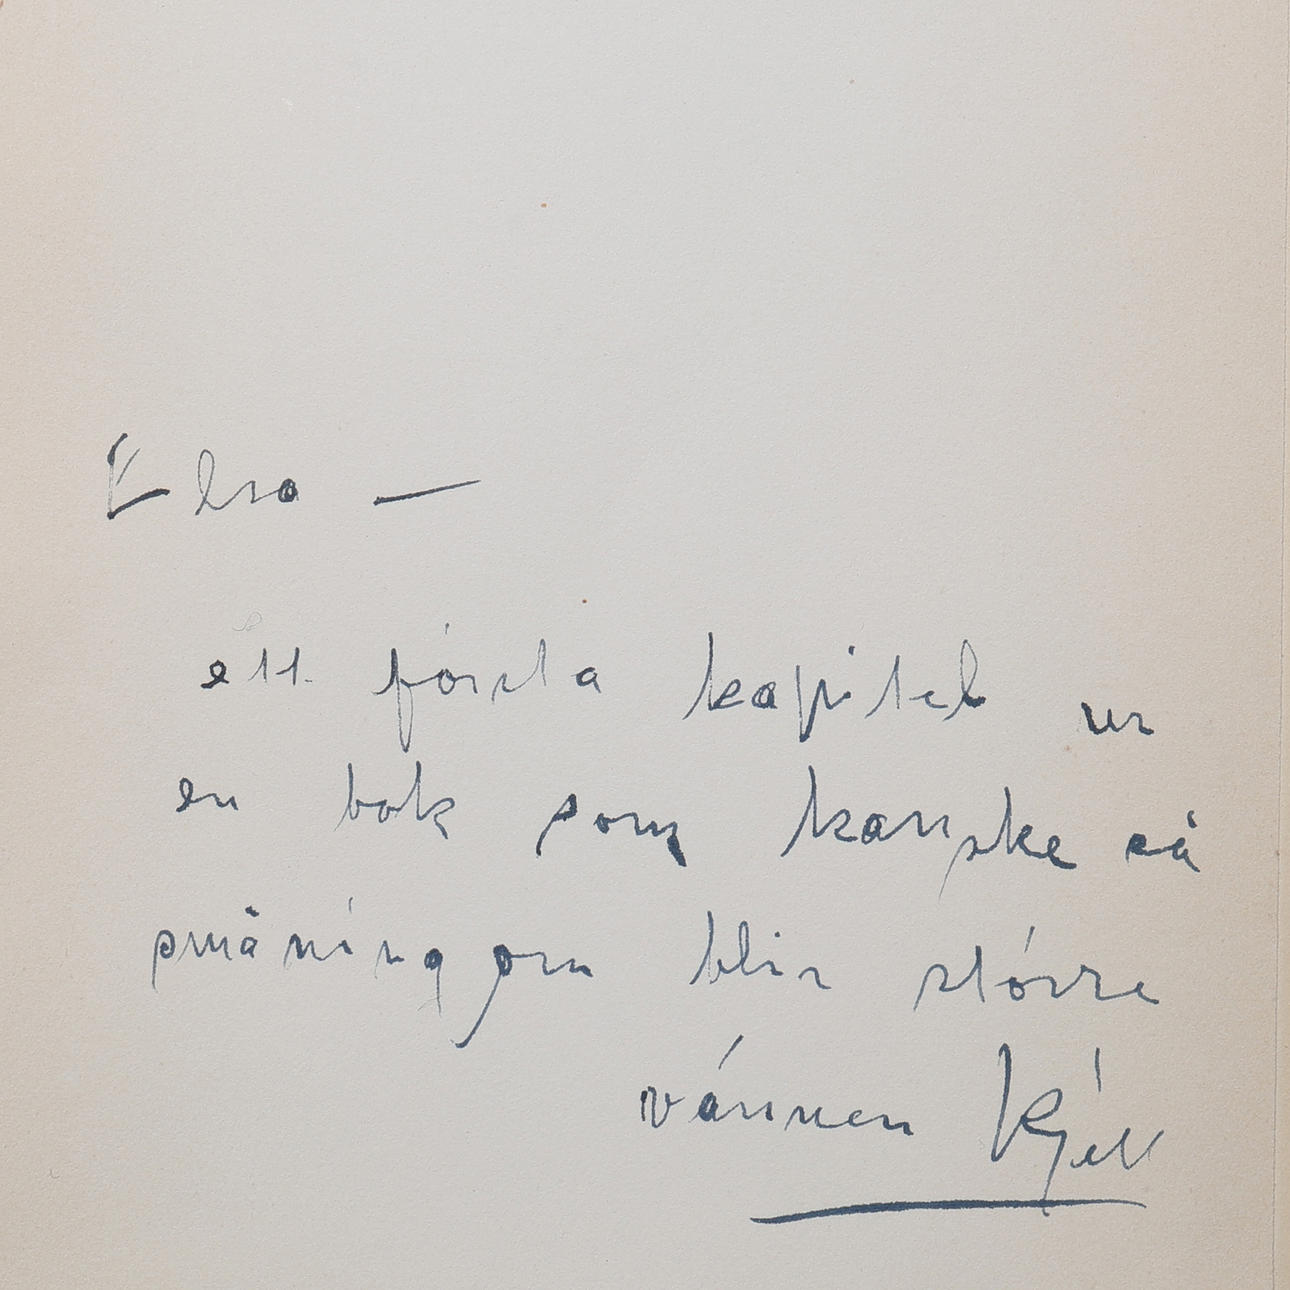 Elsa —
ett första kapitel ur
en bok som kanske så
småningom blir större
vännen Kjell